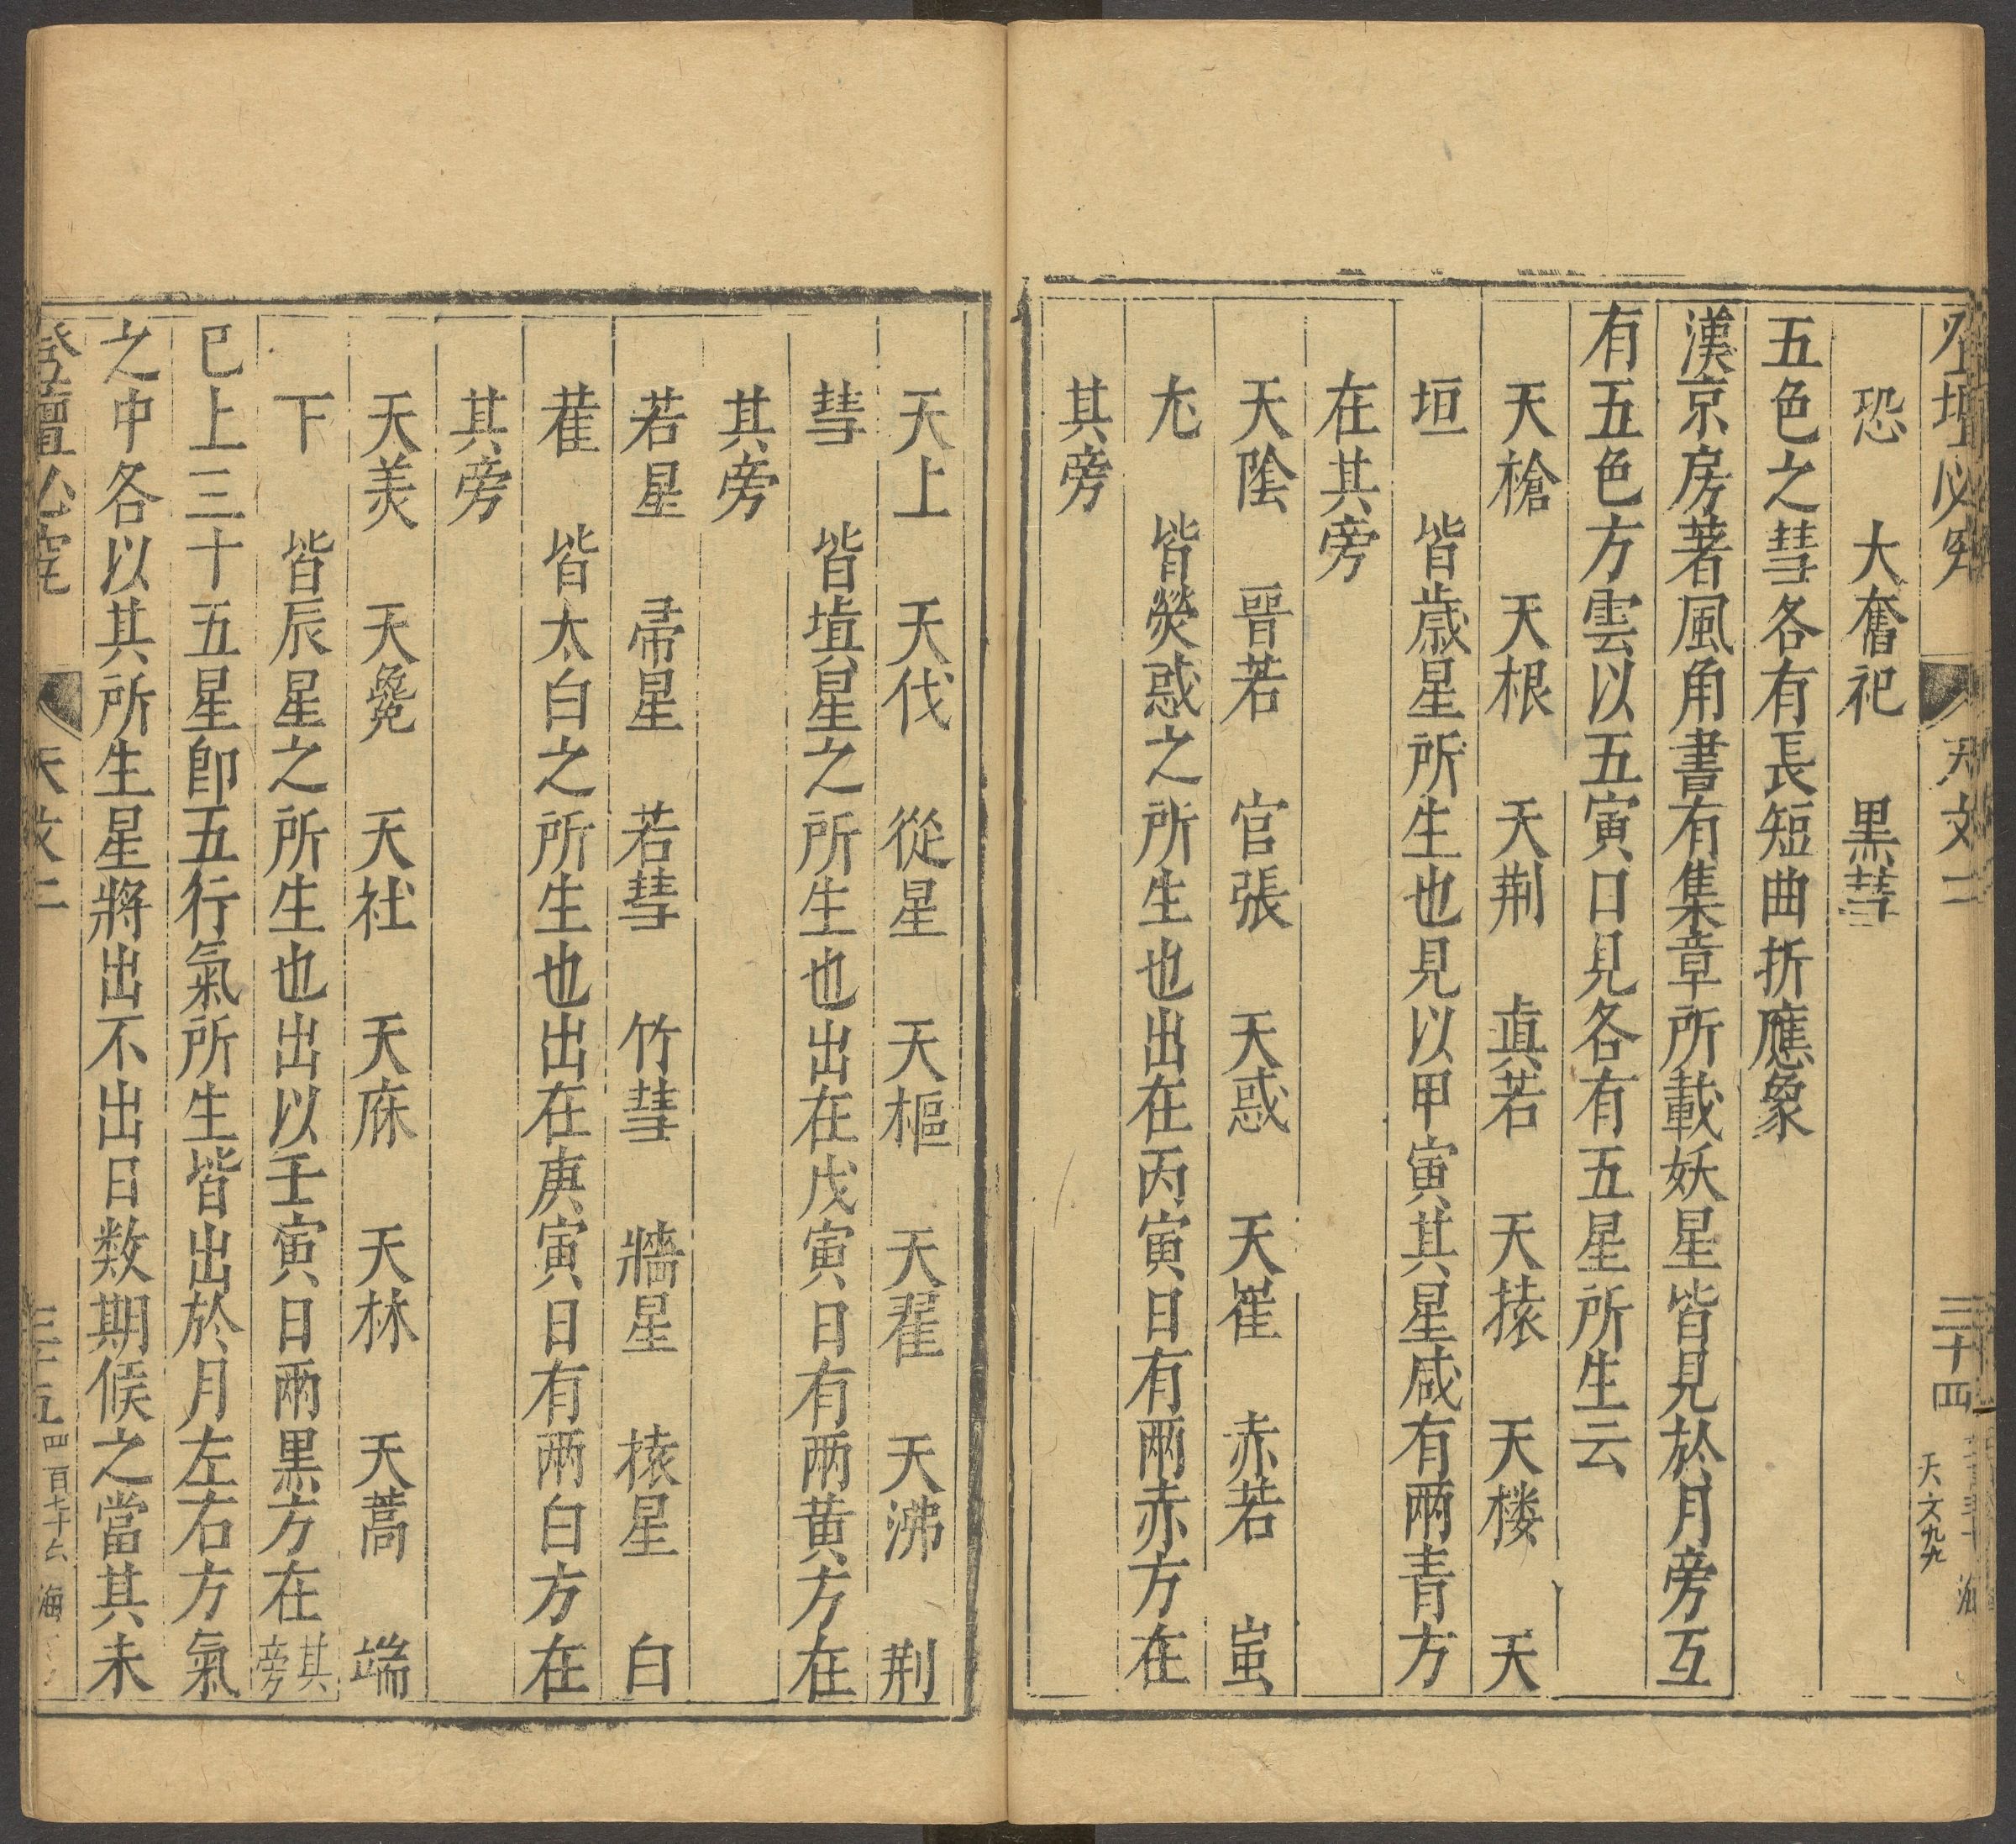 登壇必究 天文二 三十四
天文九九
恐 大奮祀 黒彗
五色之彗各有長短曲折應象
漢京房著風角書有集章所載妖星皆見於月旁互
有五色方雲以五寅日見各有五星所生云
天槍 天根 天荆 真若 天猿 天楼 天
垣 皆歲星所生也見以甲寅其星咸有兩青方
在其旁
天陰 晉若 官張 天惑 天雀 赤若 蚩
尤 皆熒惑之所生也出在丙寅日有兩赤方在
其旁
天上 天伐 從星 天樞 天翟 天沸 荆
彗 皆填星之所生也出在戊寅日有兩黄方在
其旁
若星 帚星 若彗 竹彗 牆星 猿星 白
雚 皆太白之所生也出在庚寅日有兩白方在
其旁
天美 天毚 天社 天庥 天林 天蒿 端
下 皆辰星之所生也出以壬寅日兩黒方在其旁
已上三十五星卽五行氣所生皆出於月左右方氣
之中各以其所生星將出不出日数期候之當其未
登壇必究 天文二 三十五